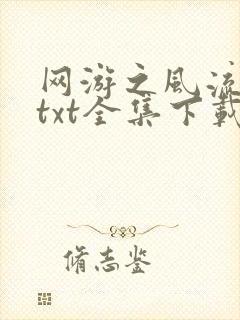 网游之风流
txt全集下载
脩志鉴